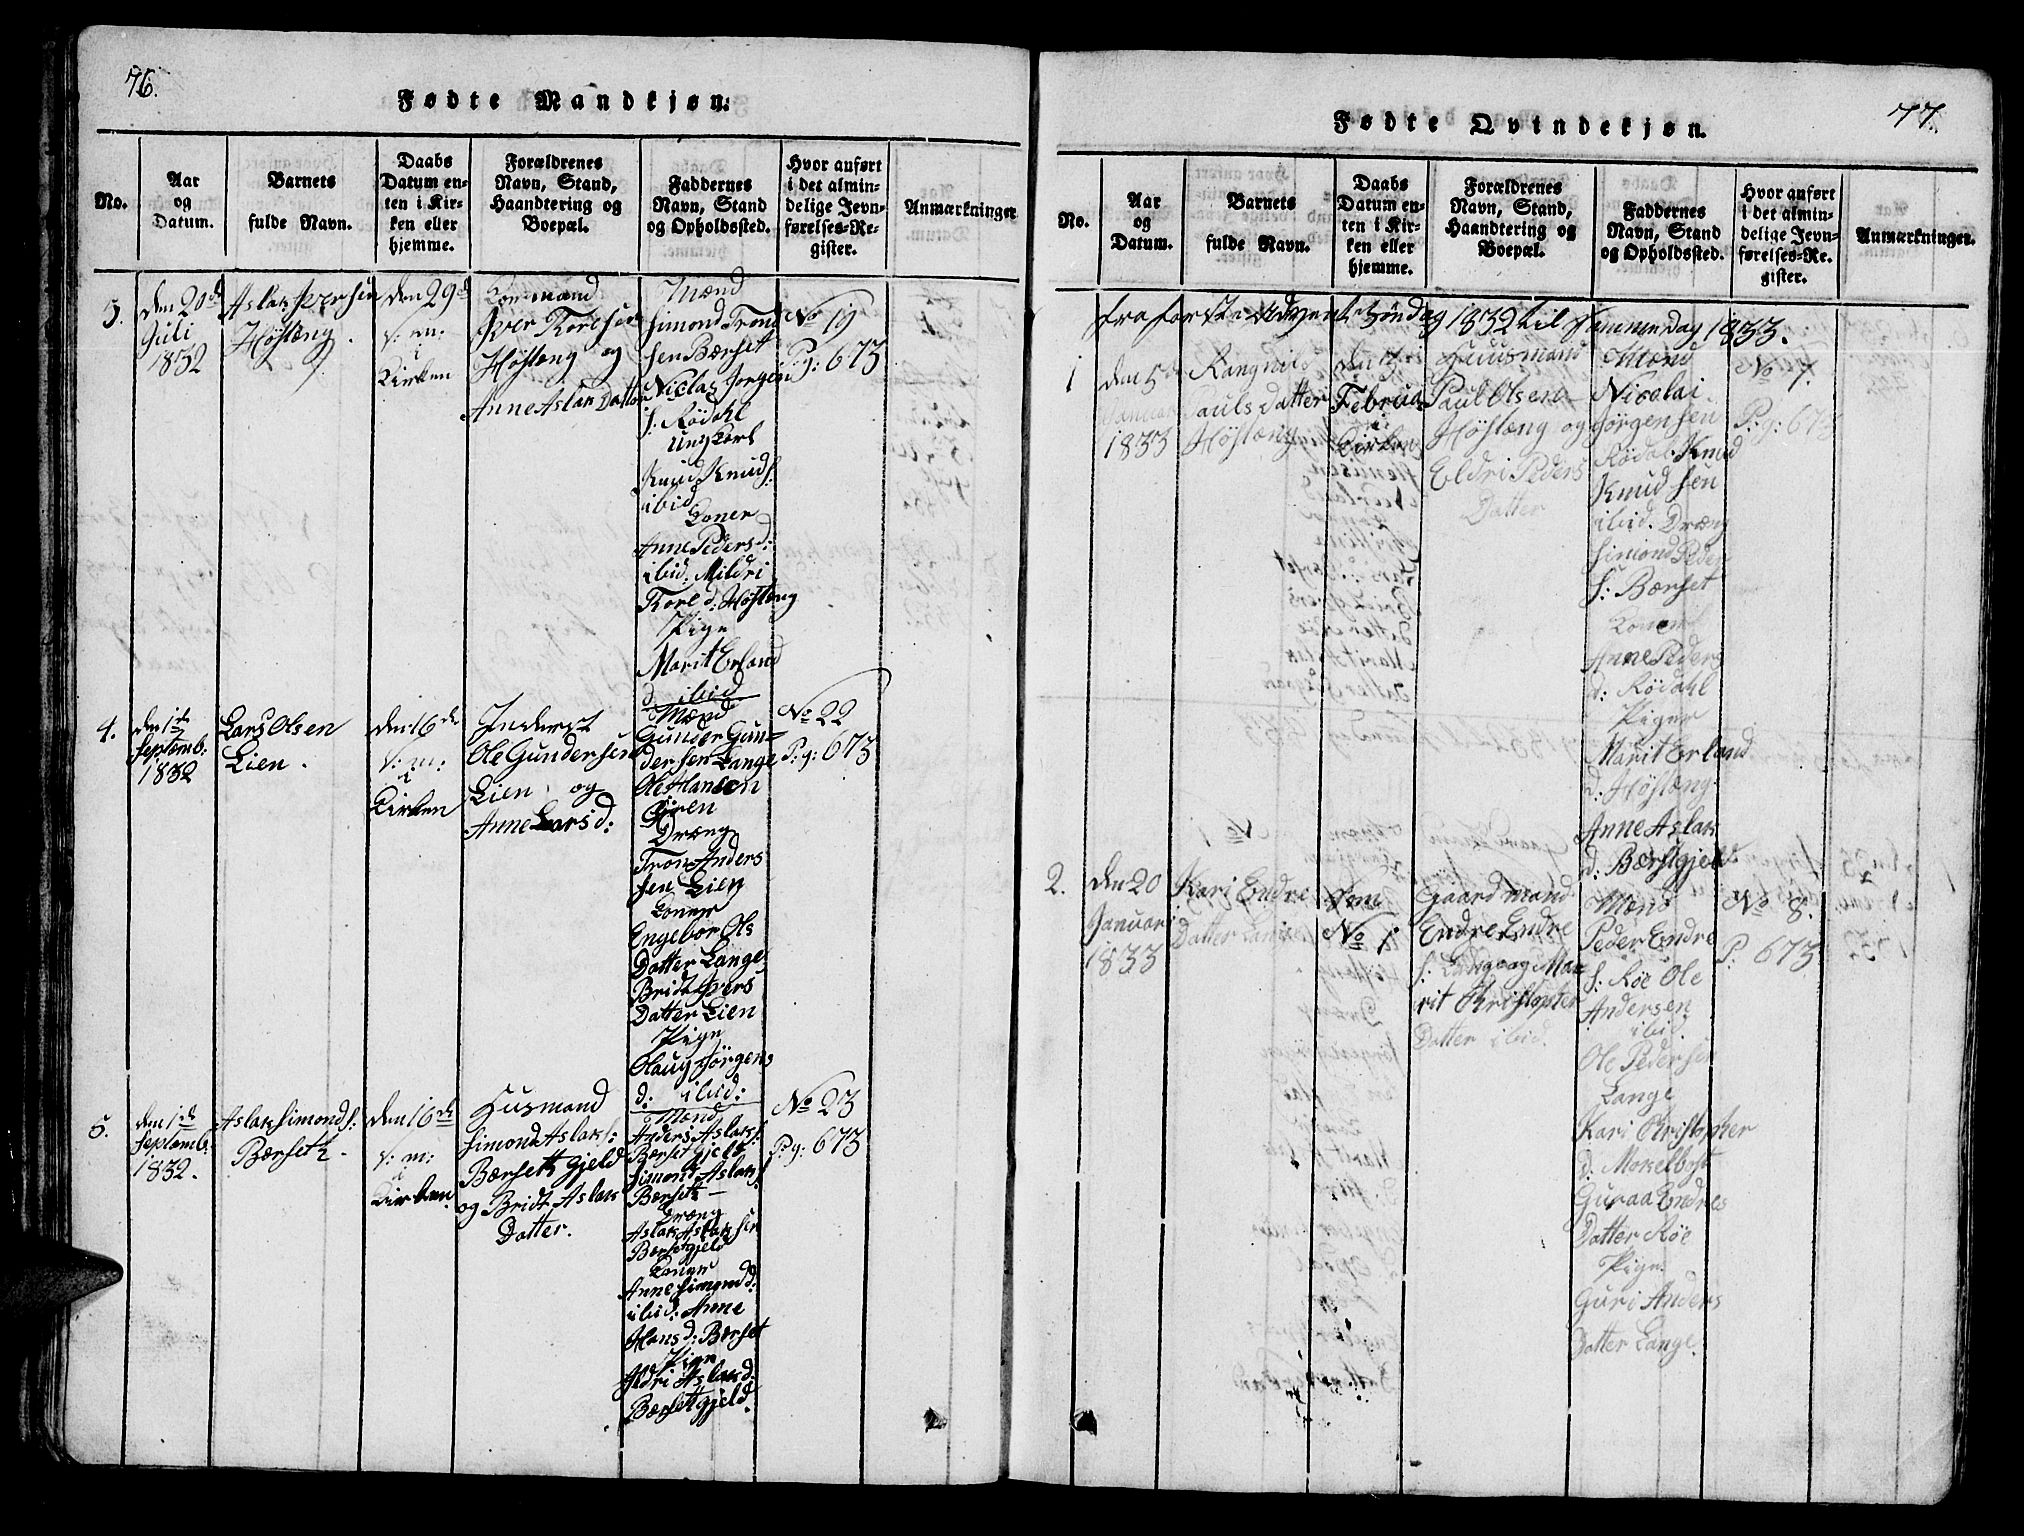 76.
Fødte Mandkjøn.
No.
Aar
og
Datum.
Barnets
fulde Navn.
Daabs
Datum en-
ten i Kir-
ken eller
hjemme.
Forældrenes
Navn, Stand,
Haandtering og
Boepæl.
Faddernes
Navn, Stand
og Opholdssted.
Hvor anført
i det almin-
delige Jevn-
førelses-Re-
gister.
Anmærkninger
3.
den 20de
Juli
1832
Aslak Iversen
Höslæng.
den 29de
s: m:
i
Kirken
Iver Torl sen
Höslæng og
Anne Aslak Datter
Mænd
Simond Trond
sen Bærset
Nicolai Jørgen
s. Rödahl
Ung Karl
Knud Knuds:
ibid
Koner
Anne Peders d:
ibid: Mildri
Torl d: Höslæng
Pige
Marit Erland
d ibid
No 19
Pg: 673
4.
den 1de
Septemb.
1832
Lars Olsen
Lien.
den 16de
s: m:
i
Kirken
Inderst
Ole Gundersen
Lien og
Anne Lars d:
Mænd
Gunder Gun-
dersen Lange
Ole Hansen
Dræng
Tron Anders
sen Lien
Koner
Engebor Ols
Datter Lange
Bridt Ivers
Datter Lien
Pige
Olaug Jörgens
d: ibid:
No 22
P:g: 673
5.
den 1de
Septemb.
1832.
Aslak Simonds:
Bærseth.
den 16de
s: m:
i
Kirken.
Husmand
Simond Aslaks:
Bærseth Gjeld
og Bridt Aslak
Datter.
Mænd
Anders Aslaks:
Bærset Gjeld
Simond Aslaks
Bærseth
Dræng
Aslak Aslaksen
Bærsetgjeld
Koner
Anne Simond d:
ibid: Anne
Hans d: Bærset
Pige
Ildri Aslak d:
Bærsetgjeld.
No 23
P:g: 673
77.
Fødte Qvindekjøn.
No.
Aar
og
Datum.
Barnets
fulde Navn.
Daabs
Datum en-
ten i Kir-
ken eller
hjemme.
Forældrenes
Navn, Stand,
Haandtering og
Boepæl.
Faddernes
Navn, Stand
og Opholdssted.
Hvor anført
i det almin-
delige Jevn-
førelses-Re-
gister.
Anmærkninger.
fra første Advent Söndag 1832 til samme Dag 1833.
1
den 5te
Januar
1833
Rangnild
Pauls Datter
Höslæng
den 3
Februa
i
Kirken
Huusmand
Paul Olsen
Höslæng og
Eldri Peders
Datter
Mænd
Nicolai
Jörgensen
Rödal Knud
Knudsen
ibid. Dræng
Simond Peder
s: Bærset
Koner
Anne Peders
d: Rödahl
Piger
Marit Erland
d: Höslæng
Anne Aslak
d: Bærsetgjeld
No 7.
P:g: 673
2.
den 20
Januari
1833
Kari Endre
Datter Lange
Som
No 1
Gaardmand
Endre Endre
s: Lange og Ma-
rit Christopher
Datter ibid.
Mænd
Peder Endre
s: Röe Ole
Andersen
ibid
Ole Pedersen
Lange
Kari Christopher
d: Mokelbost
Guraa Endres
Datter Röe
Pige
Guri Anders
Datter Lange.
No 8.
P: 673